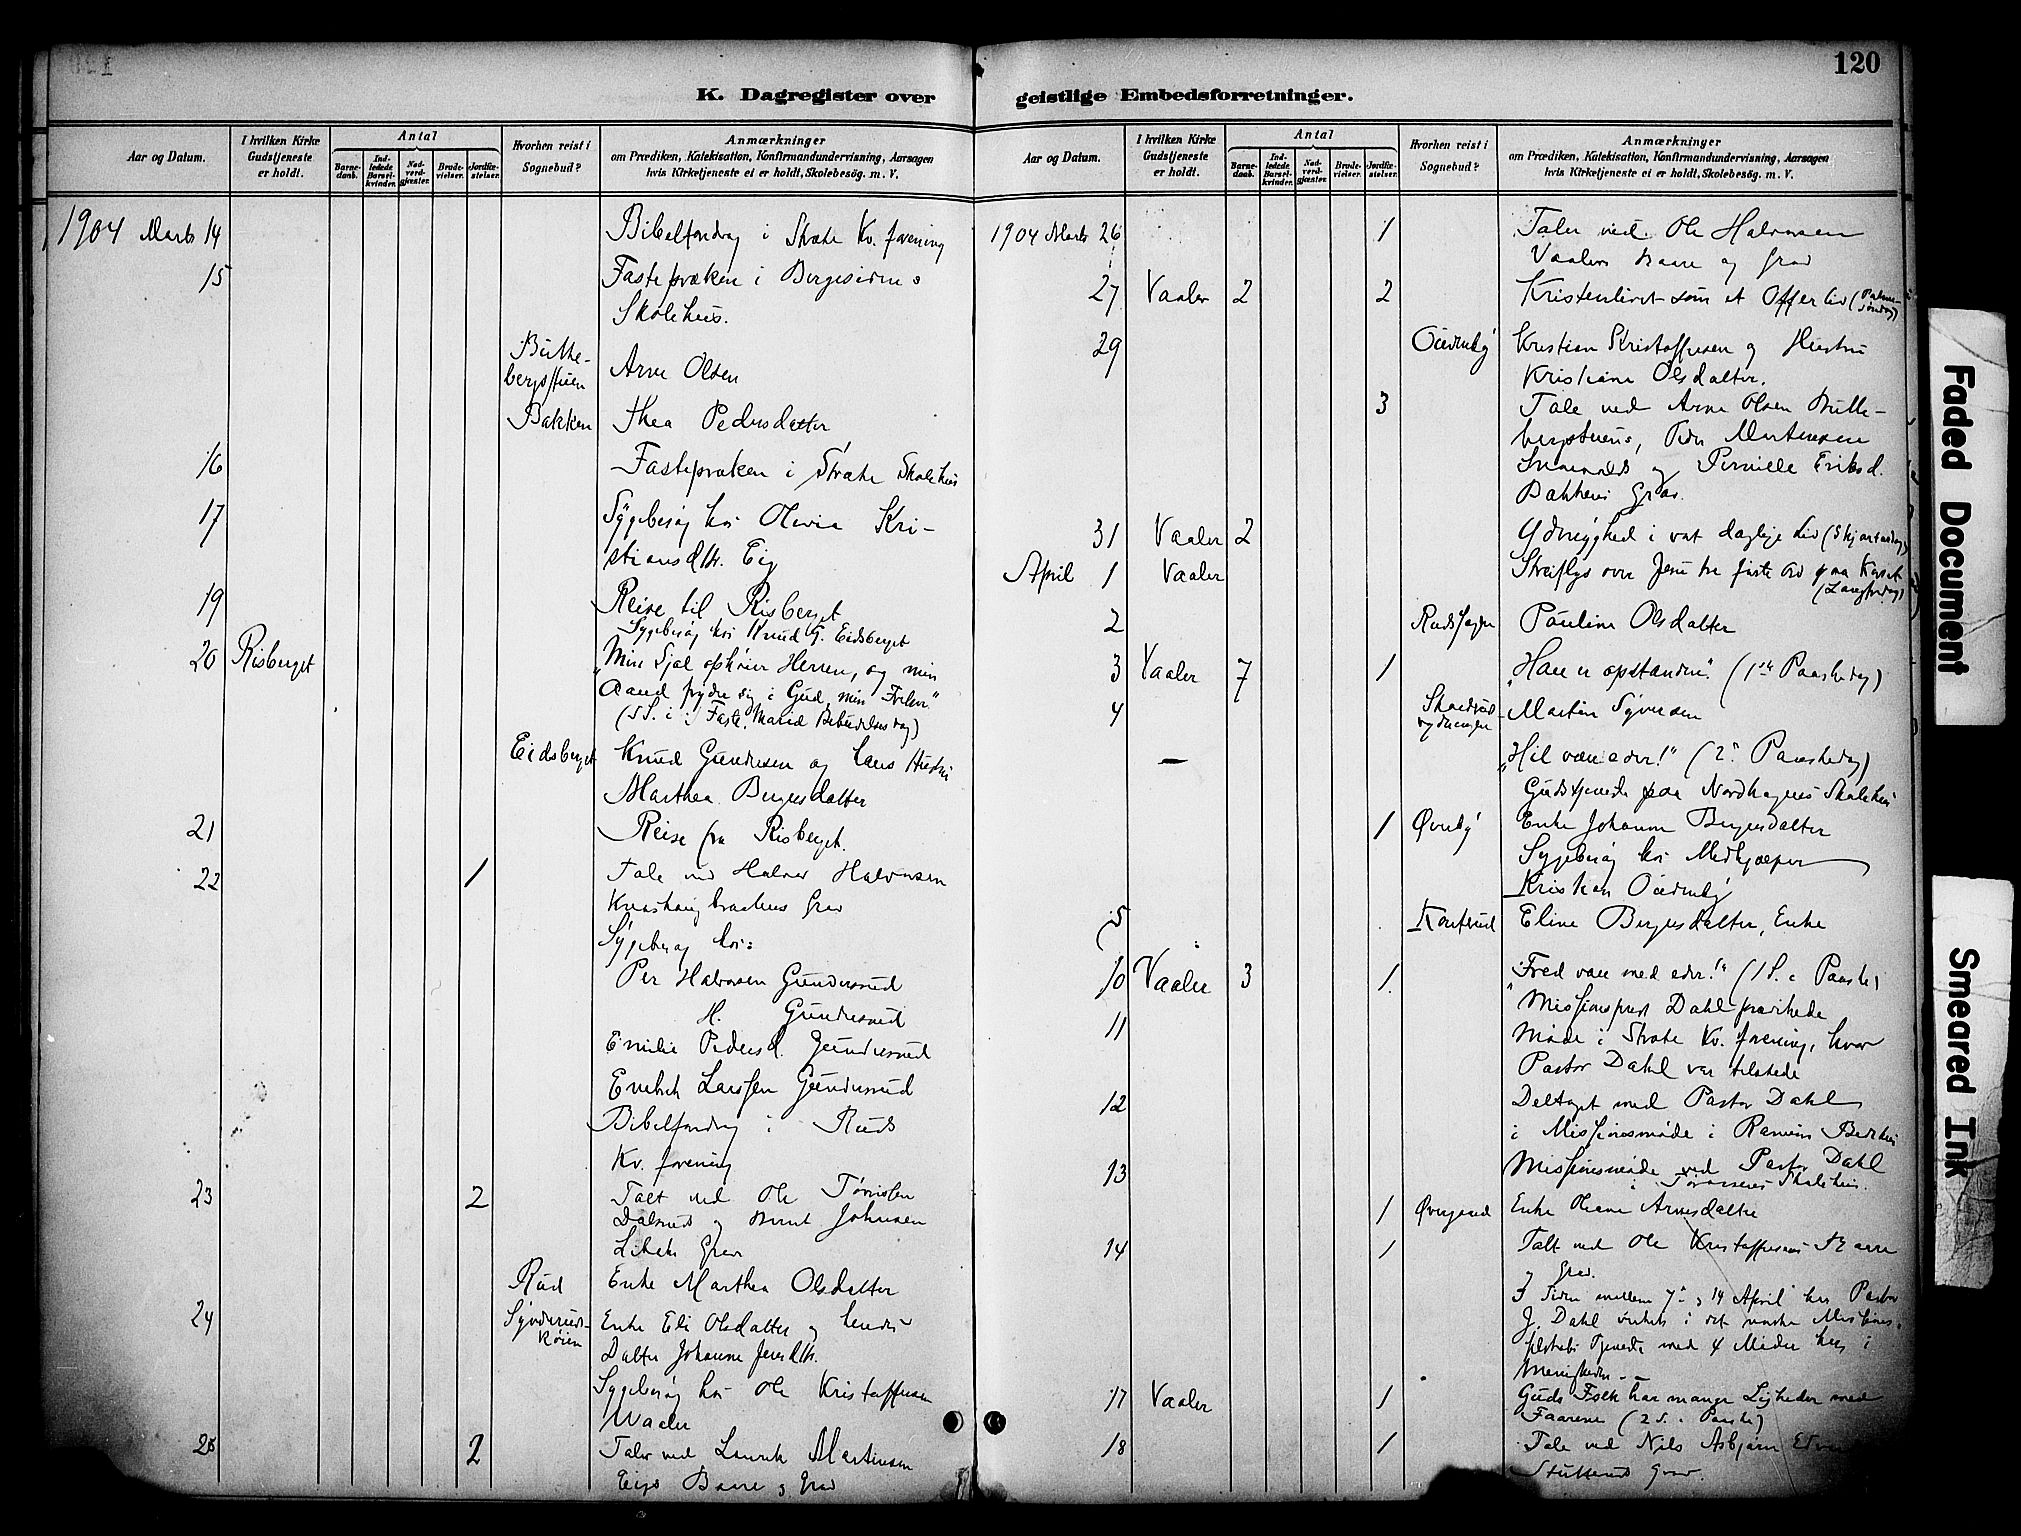 120
K. Dagregister over
geistlige Embedsforretninger.
Aar og Datum.
I hvilken Kirke Gudstjeneste er holdt.
Antal
Barnedaab.
Indledede Barselkvinder.
Nadverdgjæster.
Brudevielser.
Jordfæstelser.
Hvorhen reist i Sognebud?
Anmærkninger
om Prædiken, Katekisation, Konfirmandundervisning, Aarsagen
hvis Kirketjeneste ei er holdt, Skolebesøg. m. V.
1904 Marts 14 Bibelforedrag i Stræte Kv. forening
15 Fastepræken i Bergesidens
Skolehus.
Butte-
bergsstuen Arne Olsen
Bakken Thea Pedersdatter
16 Fastepræken i Stræte Skolehus
17 Sygebesøg hos Olivia Kri-
stiansdtr. Eig
19 Reise til Risberget
Sygebesøg hos Knud G. Eidsberget
20 Risberget "Min Sjæl ophøier Herren, og min
Aand fryder sig i Gud, min Frelser"
(5 S. i Faste, Mariæ Bebudelses dag)
Eidsberget Knud Gundersen og hans Hustru
Marthea Bergersdatter
21 Reise fra Risberget.
22 1 Tale ved Halvor Halvorsen
Grav
Sygebesøg hos:
Per Halvorsen Gundersrud
H. Gundersrud
Emilie Pedersd. Gundersrud
Larssen Gundersrud
Bibelforedrag i Ruds
Kv. forening
23 2 Talt ved Ole
og Johnsen
Grav
Rud Enke Marthea Olsdatter
24 Enke Eli Olsdatter og hendes
Datter Johanne
Sygebesøg hos Ole Kristoffersen
Vaaler
26 2 Taler ved Martinsen
Eigs Baare og Grav
Aar og Datum.
I hvilken Kirke Gudstjeneste er holdt.
Antal
Barnedaab.
Indledede Barselkvinder.
Nadverdgjæster.
Brudevielser.
Jordfæstelser.
Hvorhen reist i Sognebud?
Anmærkninger
om Prædiken, Katekisation, Konfirmandundervisning, Aarsagen
hvis Kirketjeneste ei er holdt, Skolebesøg. m. V.
1904 Marts 26 1 Taler ved Ole Halvorsen
Vaalers Baare og Grav
27 Vaaler 2 2 Kristenlivet som et Offerliv (Palmesøndag)
29 Kristian Kristoffersen og Hustru
Kristiane Olsdatter.
3 Tale ved Arne Olsen Butte-
bergstuens, Peder Martinsen
og Pernille Eriksd.
Bakkens Grav.
31 Vaaler 2 Ydmyghed i vort daglige Liv (Skjærtorsdag)
April 1 Vaaler Streiflys over Jesu tre første Ord paa Korset
(Langfredag)
2 Pauline Olsdatter
3 Vaaler 7 1 "Han er opstanden" (1ste Paaskedag)
4 Martin Syversen
— "Hil være eder!" (2. Paaskedag)
Gudstjeneste paa Nordhagens Skolehus
1 Øverby Enke Johanne Bergersdatter
Sygebesøg hos Medhjælper
Kristian
5 Eline Bergersdatter, Enke
10 Vaaler 3 1 "Fred være med eder!" (1 S. e. Paaske)
Missionsprest Dahl prædikede
11 Møde i Stræte Kv. forening, hvor
Pastor Dahl var tilstede
12 Deltaget med Pastor Dahl
i Missionsmøde i Bedehus
13 Missionsmøde ved Pastor Dahl
i Skolehus.
1 Enke Arnesdatter
14 1 Talt ved Ole Kristoffersens Baare
og Grav.
I Tiden mellem 7de og 14 April har Pastor
J. Dahl virket i det norske Missions-
selskabs Tjeneste med 4 Møder her i
Menigheden.
17 Vaaler 1 Guds Folk har mange Ligheder med
Faarene (2 S. e. Paaske)
18 1 Tale ved Nils Asbjørn
Grav.
Faded Document
Smeared Ink